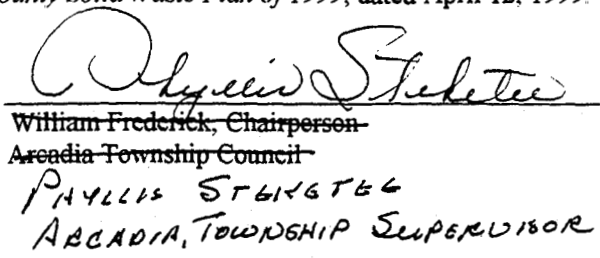 ounty Solid Waste Plan of 1999, dated April 12, 1999.
Phyllis Steketee
William Frederick, Chairperson
Arcadia Township Council
PHYLLIS STEKETEE
ARCADIA, TOWNSHIP SUPERVISOR